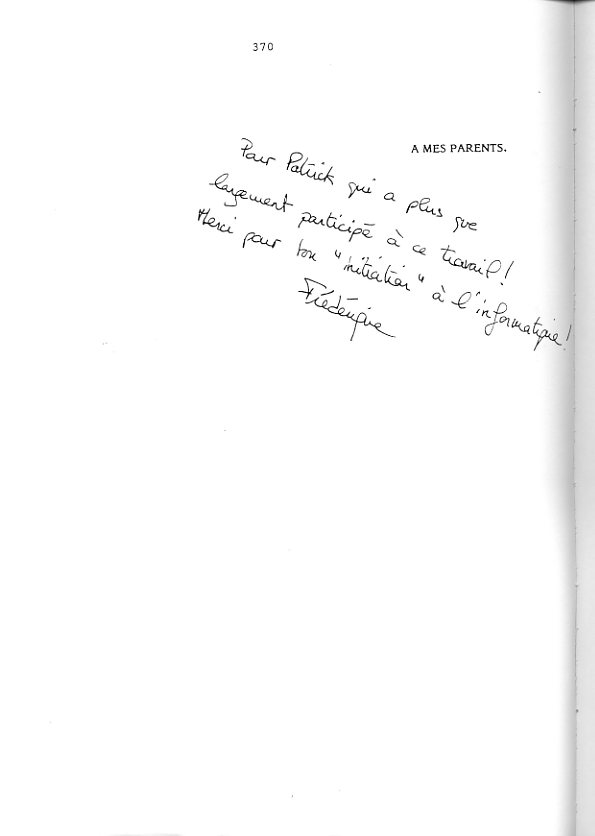 370
A MES PARENTS.
Pour Patrick qui a plus que
largement participé à ce travail!
Merci pour ton "initiation" à l'informatique!
Frédérique